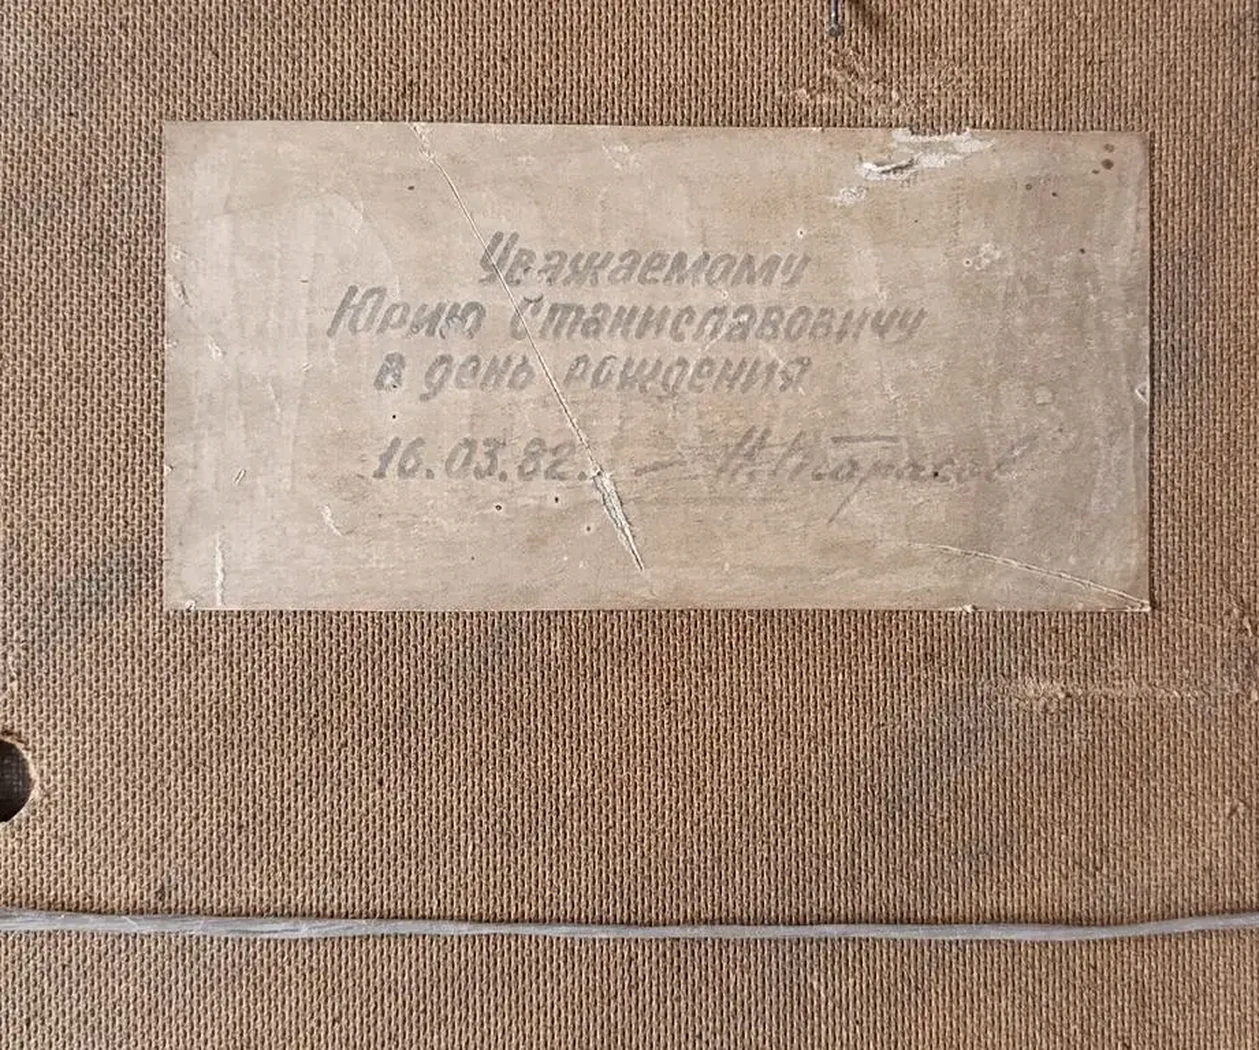 Уважаемому
Юрию Станиславовичу
в день рождения
16.03.82. –